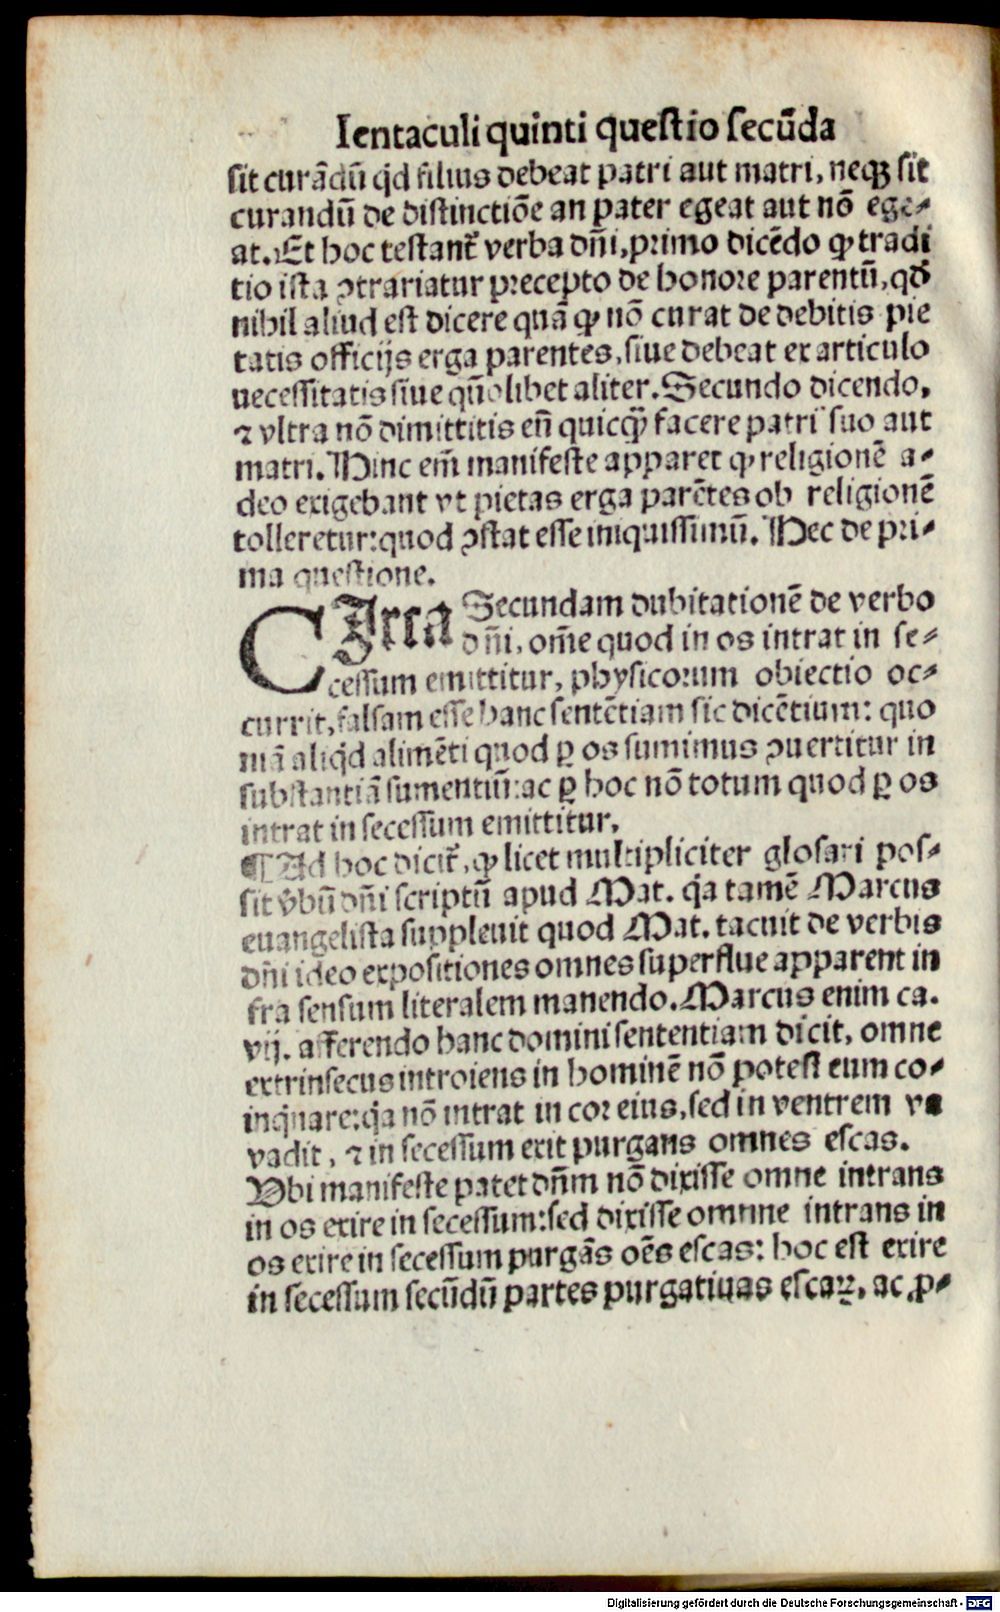 Ientaculi quinti questio secūda
sit curādū qd filius debeat patri aut matri, neqꝫ sit
curandū de distinctiōe an pater egeat aut nō ege-
at. Et hoc testant̃ verba dñi, primo dicēdo ꝙ tradi
tio ista ꝯtrariatur precepto de honore parentū, qđ
nihil aliud est dicere quā ꝙ nō curat de debitis pie
tatis officijs erga parentes, siue debeat ex articulo
necessitatis siue qūolibet aliter. Secundo dicendo,
⁊ vltra nō dimittitis eū quicꝙ̄ facere patri suo aut
matri. Hinc em̄ manifeste apparet ꝙ religionē a-
deo exigebant vt pietas erga parētes ob religionē
tolleretur: quod ꝯstat esse iniquissimū. Hec de pri-
ma questione.
CIrca Secundam dubitationē de verbo
dñi, om̄e quod in os intrat in se-
cessum emittitur, physicorum obiectio oc-
currit, falsam esse hanc sentētiam sic dicētium: quo
niā aliqd alimēti quod ꝑ os sumimus ꝯuertitur in
substantiā sumentiū: ac ꝑ hoc nō totum quod ꝑ os
intrat in secessum emittitur.
¶ Ad hoc dicit̃, ꝙ licet multipliciter glosari pos-
sit v̄bū dñi scriptū apud Mat. qa tamē Marcus
euangelista suppleuit quod Mat. tacuit de verbis
dñi ideo expositiones omnes superflue apparent in
fra sensum literalem manendo. Marcus enim ca.
vij. afferendo hanc domini sententiam dicit, omne
extrinsecus introiens in hominē nō potest eum co-
inqnare: qa nō intrat in cor eius, sed in ventrem
vadit, ⁊ in secessum exit purgans omnes escas.
Vbi manifeste patet dñm nō dixisse omne intrans
in os exire in secessum: sed dixisse omnne intrans in
os exire in secessum purgās oēs escas: hoc est exire
in secessum secūdū partes purgatiuas escaꝝ, ac ꝓ-
Digitalisierung gefördert durch die Deutsche Forschungsgemeinschaft - DFG